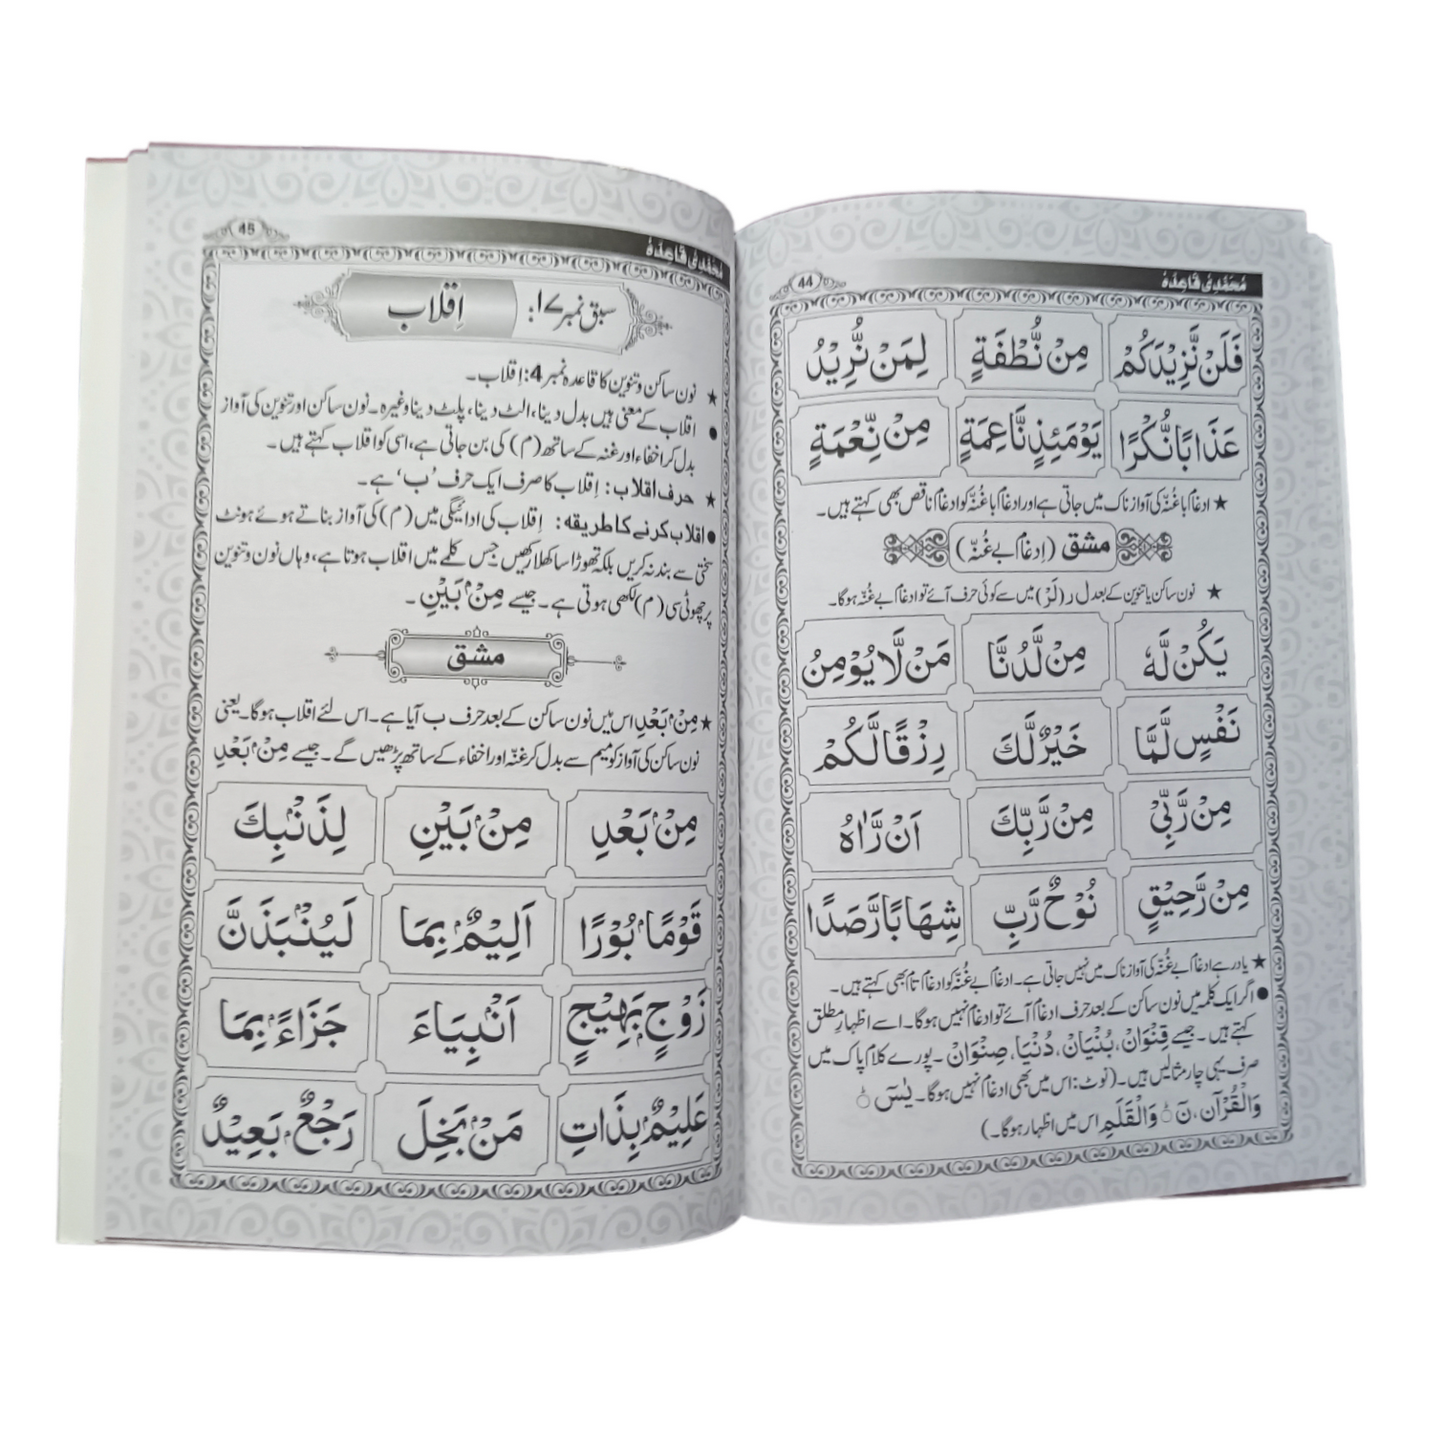 44
مُحَمَّدِیْ قَاعِدَہْ
فَلَنْ نَّزِيْدَكُمْ مِنْ نُّطْفَةٍ لِمَنْ نُّرِيْدُ
عَذَابًا نُّكْرًا يَوْمَئِذٍ نَّاعِمَةٍ مِنْ نِّعْمَةٍ
★ ادغام باغُنّہ کی آواز ناک میں جاتی ہے اور ادغام باغُنّہ کو ادغام ناقص بھی کہتے ہیں۔
مشق (اِدغام بے غُنّہ)
★ نون ساکن یا تنوین کے بعد ل ر (لَرْ) میں سے کوئی حرف آئے تو ادغام بے غُنّہ ہوگا۔
يَكُنْ لَّهٗ مِنْ لَّدُنَّا مَنْ لَّا يُوْمِنُ
نَفْسٍ لَّمَّا خَيْرٌ لَّكَ رِزْقًا لَّكُمْ
مِنْ رَّبِّيْ مِنْ رَّبِّكَ اَنْ رَّاٰهُ
مِنْ رَّحِيْقٍ نُوْحٌ رَّبِّ شِهَابًا رَّصَدًا
★ یاد رہے ادغام بے غُنّہ کی آواز ناک میں نہیں جاتی ہے۔ ادغام بے غُنّہ کو ادغام تام بھی کہتے ہیں۔
● اگر ایک کلمہ میں نون ساکن کے بعد حرف ادغام آئے تو ادغام نہیں ہوگا۔ اسے اظہارِ مطلق
کہتے ہیں۔ جیسے قِنْوَانٌ، بُنْيَانٌ، دُنْيَا، صِنْوَانٌ۔ پورے کلام پاک میں
صرف یہی چار مثالیں ہیں۔ (نوٹ: اس میں بھی ادغام نہیں ہوگا۔ يٰسٓ ۚ
وَالْقُرْآنِ، نٓ ۚ وَالْقَلَمِ اس میں اظہار ہوگا۔)
45
مُحَمَّدِیْ قَاعِدَہْ
سبق نمبر ۱۷: اِقلاب
★ نون ساکن و تنوین کا قاعدہ نمبر 4: اِقلاب۔
● اقلاب کے معنی ہیں بدل دینا، الٹ دینا، پلٹ دینا وغیرہ۔ نون ساکن اور تنوین کی آواز
بدل کر اخفاء اور غنہ کے ساتھ (م) کی بن جاتی ہے، اسی کو اقلاب کہتے ہیں۔
★ حرف اقلاب: اِقلاب کا صرف ایک حرف ’ب‘ ہے۔
● اقلاب کرنے کا طریقہ: اِقلاب کی ادائیگی میں (م) کی آواز بناتے ہوئے ہونٹ
سختی سے بند نہ کریں بلکہ تھوڑا سا کھلا رکھیں جس کلمے میں اقلاب ہوتا ہے، وہاں نون و تنوین
پر چھوٹی سی (م) لکھی ہوتی ہے۔ جیسے مِنْۢ بَيْنِ۔
مشق
★ مِنْۢ بَعْدِ اس میں نون ساکن کے بعد حرف ب آیا ہے۔ اس لئے اقلاب ہوگا۔ یعنی
نون ساکن کی آواز کو میم سے بدل کر غنّہ اور اخفاء کے ساتھ پڑھیں گے۔ جیسے مِنْۢ بَعْدِ
مِنْۢ بَعْدِ مِنْۢ بَيْنِ لِذَنْۢبِكَ
قَوْمًاۢ بُوْرًا اَلِيْمٌۢ بِمَا لَيُنْۢبَذَنَّ
زَوْجٍۢ بَهِيْجٍ اَنْۢبِيَاءَ جَزَاءًۢ بِمَا
عَلِيْمٌۢ بِذَاتِ مَنْۢ بَخِلَ رَجْعٌۢ بَعِيْدٌ